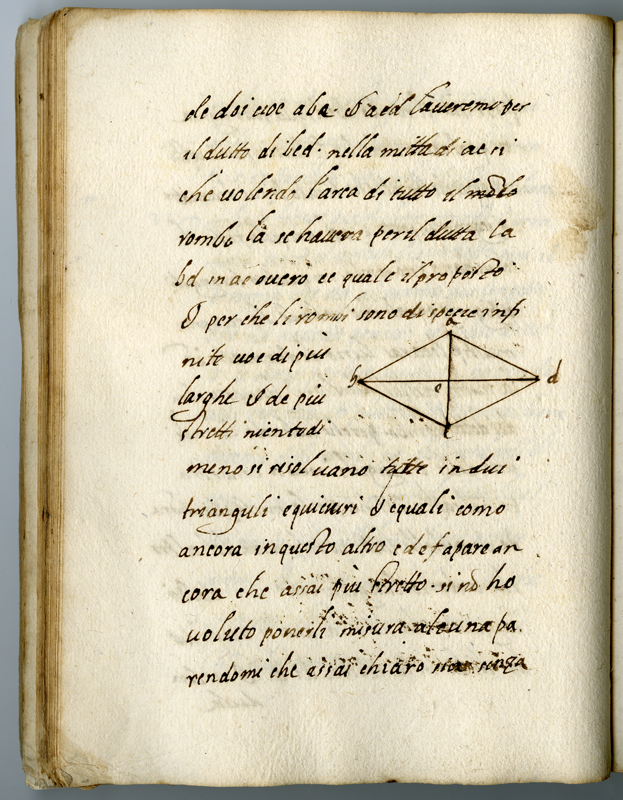 de doi uoe aba. & aed l'averemo per
il dutto di bed. nella mitta di ae si
che uolendo l'area di tutto il
rombo la se havera per il dutta la
bd in ae ouero ec quale il proposto
& per che li rombi sono di specie infi
a
nite uoe di più
b d
e
larghe & de più
c
stretti niente di
meno si risoluano tutte in dui
trianguli equicuri & equali como
ancora in questo altro c d e f apare an
cora che assai più stretto. si nõ ho
uoluto ponerli misura alcuna pa
rendomi che assai chiaro